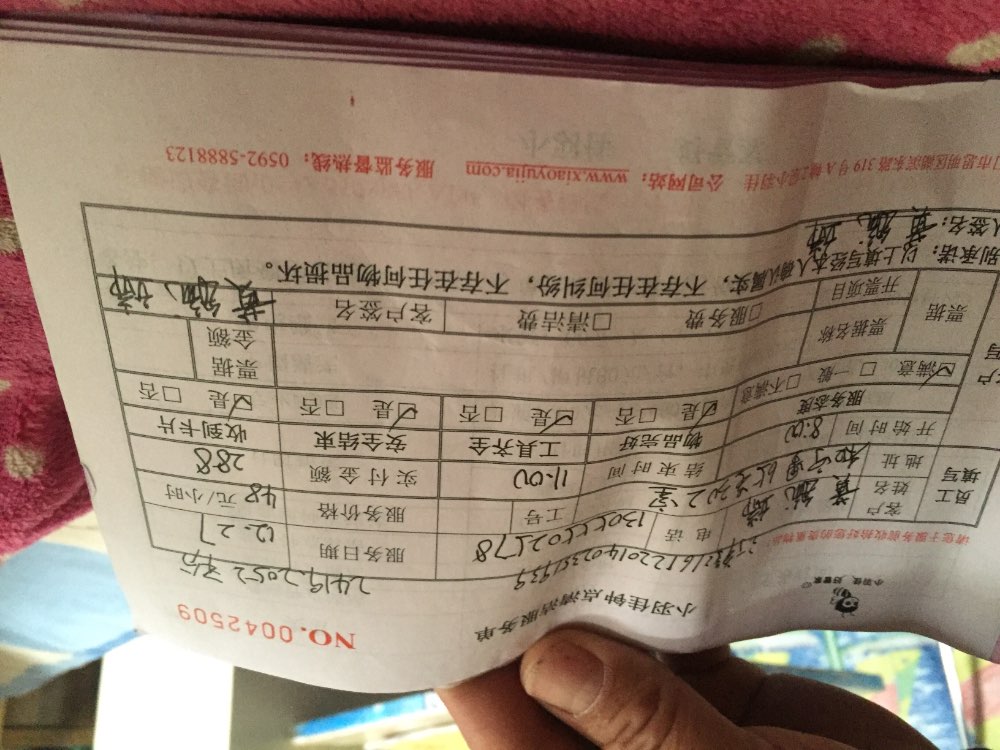 NO.0042509
小羽佳钟点清洁服务单
小羽佳, 好管家
请您于服务前收拾好您的贵重物品
员工填写
客户姓名 黄 电话 服务日期 12.27
地址 工号 服务价格 48 元/小时
开始时间 8:00 结束时间 11:00 实付金额 288
服务态度 物品完好 工具齐全 安全结束 收到卡片
☑满意 □一般 □不满意 ☑是 □否 ☑是 □否 ☑是 □否 ☑是 □否
票据 票据名称 票据金额
开票项目 □服务费 □清洁费 客户签名 黄
别承诺: 以上填写经本人确认属实, 不存在任何纠纷, 不存在任何物品损坏。
人签名: 黄
门市思明区湖滨东路 319 号 A 幢2层小羽佳 公司网站: www.xiaoyujia.com 服务监督热线: 0592-5888123